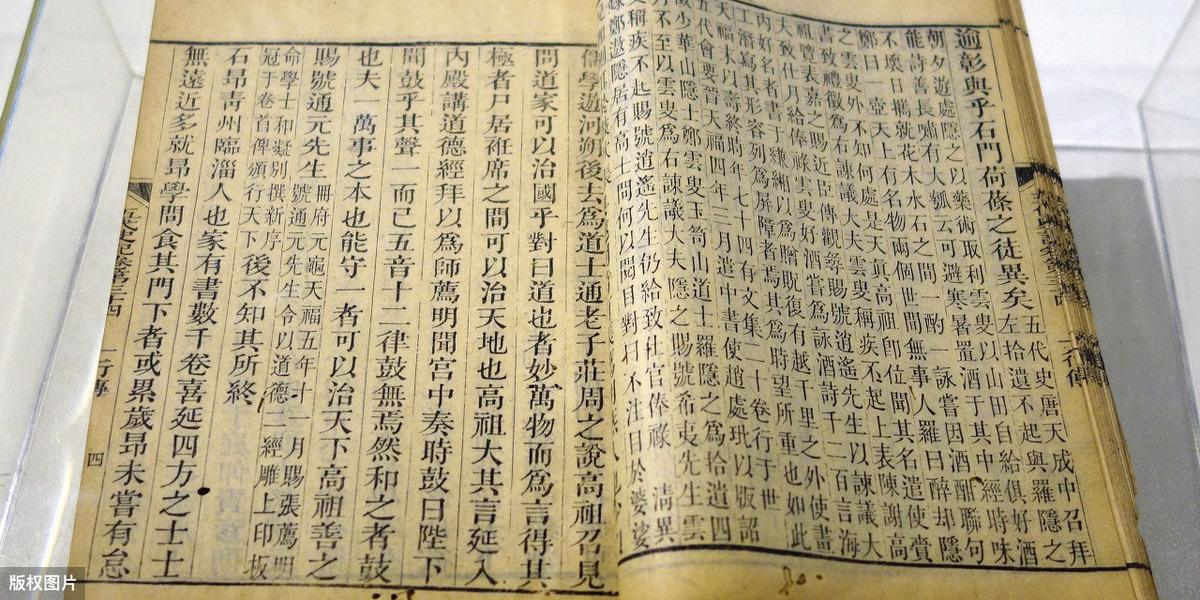 逾彰與乎石門荷蓧之徒異矣五代史唐天成中召拜
左拾遺不起與羅隱之
朝夕遊處隱之以藥術取利雲叟以山田自給俱好酒
能詩善長嘯有大瓠云可避寒暑置酒于其中經時味
不壞日攜就花木水石之間一酌一詠嘗因酒酣聯句
鄭曰一壺天上有名物兩個世間無事人羅曰醉却隱
之雲叟外不知何處是天真高祖即位聞其名遣使賫
書致禮徵為右諫議大夫雲叟稱疾不起上表陳謝高
祖覽表嘉之賜近臣傳觀尋賜號逍遙先生以諫議大
夫致仕月給俸祿雲叟好酒嘗為詠酒詩千二百言海
內好名者書于縑緗以為贈貺復有越千里之外使畫
工潛寫其形容列為屏障者焉其為時望所重也如此
天福末以壽終時年七十四有文集二十卷行于世
五代會要晉天福四年三月遣中書使趙處玭以版詔
徵少華山隱士鄭雲叟玉笥山道士羅隱之為拾遺四
月不至以雲叟為右諫議大夫隱之賜號希夷先生雲
叟稱疾不起賜號逍遙先生仍給致仕官俸祿 清異
錄鄭遨隱居有高士問何以閱目對曰不注目於婆娑
儒學遊河朔後去為道士通老子莊周之說高祖召見
問道家可以治國乎對曰道也者妙萬物而為言得其
極者尸居袵席之間可以治天地也高祖大其言延入
內殿講道德經拜以為師薦明聞宮中奏時鼓曰陛下
聞鼓乎其聲一而已五音十二律鼓無焉然和之者鼓
也夫一萬事之本也能守一者可以治天下高祖善之
賜號通元先生冊府元龜天福五年十一月賜張薦明
號通元先生令以道德二經雕上印板
命學士和凝別撰新序
冠于卷首俾頒行天下後不知其所終
石昂青州臨淄人也家有書數千卷喜延四方之士士
無遠近多就昂學問食其門下者或累歲昂未嘗有怠
四
版权图片